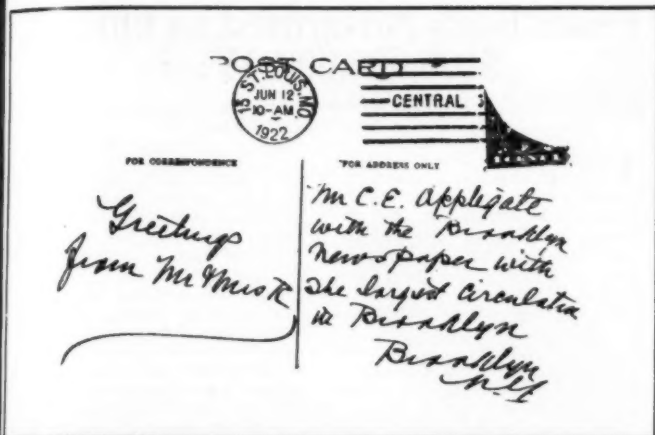 POST CARD
ST. LOUIS, MO.
15
JUN 12
10-AM
1922
CENTRAL
FOR CORRESPONDENCE
FOR ADDRESS ONLY
Greetings
from Mr Mrs R
Mr C.E. Applegate
with the Brooklyn
Newspaper with
The largest Circulation
in Brooklyn
Brooklyn
N.Y